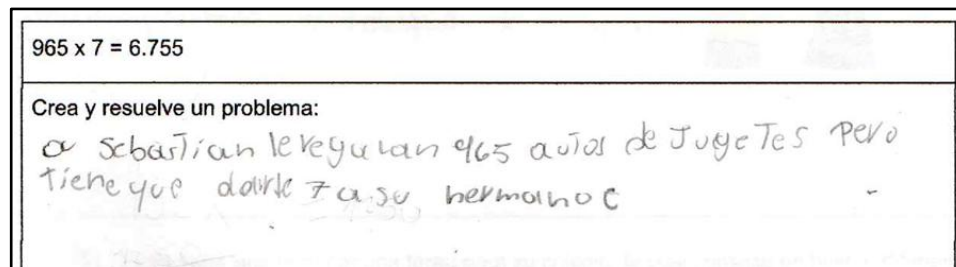 965 x 7 = 6.755
Crea y resuelve un problema:
a Sebastian le regalan 965 autos de Jugetes pero
tiene que darle 7 a su hermano c